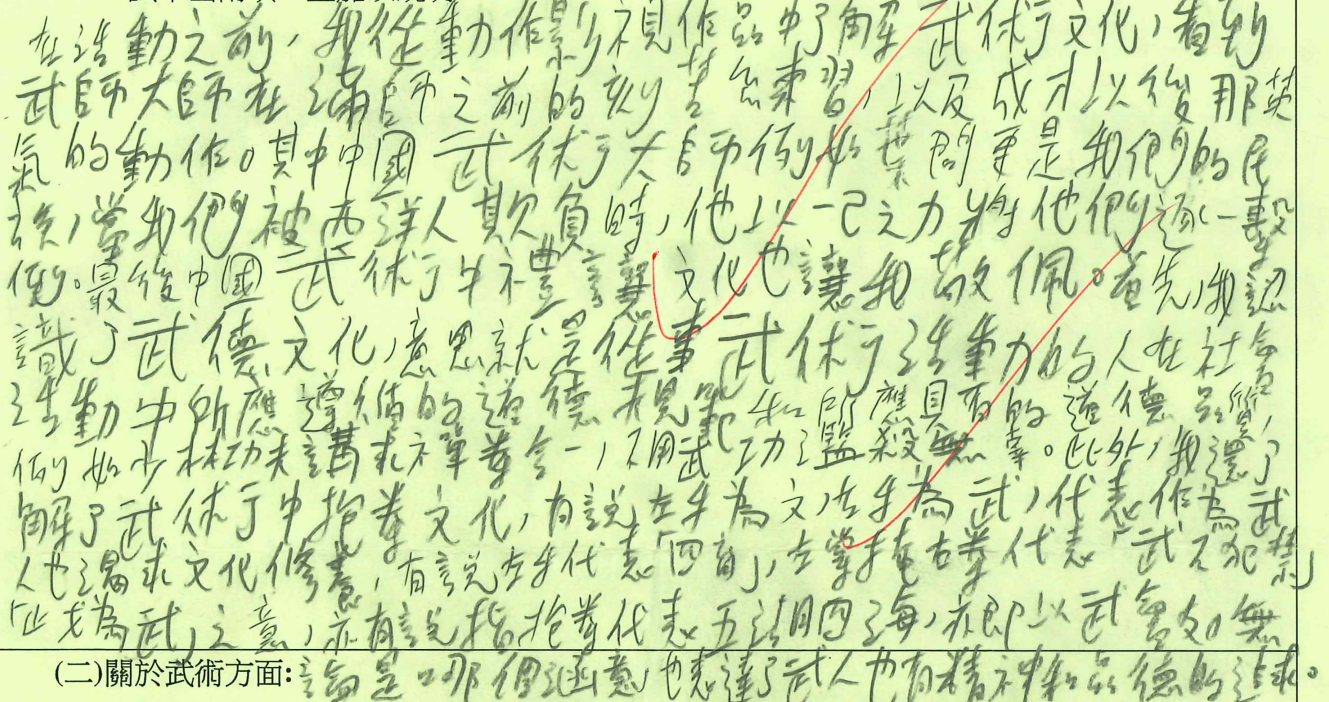 在活動之前，我從動作影視作品中了解武術文化，看到
武師大師在滿師之前的刻苦練習，以及成才以後那英
氣的動作。其中中國武術大師例如葉問更是我們的民
族，當我們被西洋人欺負時，他以一己之力將他們逐一擊
倒。最後中國武術中禮讓文化也讓我敬佩。首先，我認
識了武德文化，意思就是從事武術活動的人在社會
活動中所應遵循的道德規範和所應具有的道德品質，
例如少林功夫講求禪拳合一，不用武功濫殺無辜。此外，我還了
解了武術中抱拳文化，有說左手為文，右手為武，代表作為武
人也渴求文化修養，有說左手代表「四育」，左掌掩右拳代表「武不犯禁」
「止戈為武」之意，亦有說指抱拳代表五湖四海，亦即以武會友，無
(二)關於武術方面：論是哪個涵意，也表達了武人也有精神和品德的追求。